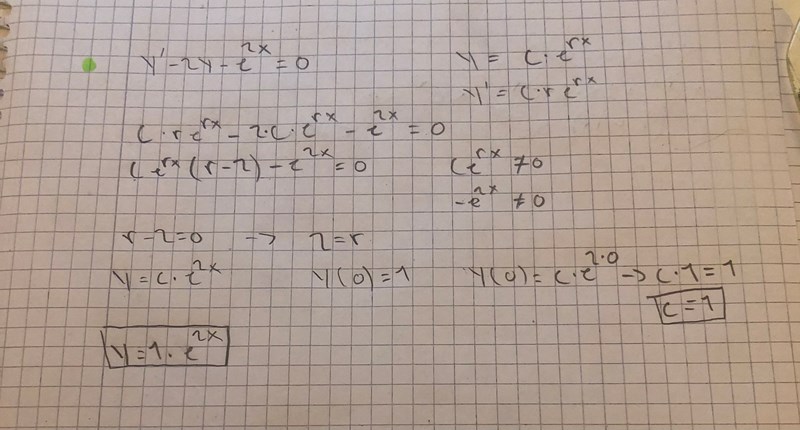 y' - 2y - e^{2x} = 0    y = c · e^{rx}
y' = c · r e^{rx}
c · r e^{rx} - 2 · c · e^{rx} - e^{2x} = 0
c e^{rx} (r - 2) - e^{2x} = 0    c e^{rx} ≠ 0
-e^{2x} ≠ 0
r - 2 = 0 -> 2 = r
y = c · e^{2x}    y(0) = 1    y(0) = c · e^{2·0} -> c · 1 = 1
c = 1
y = 1 · e^{2x}